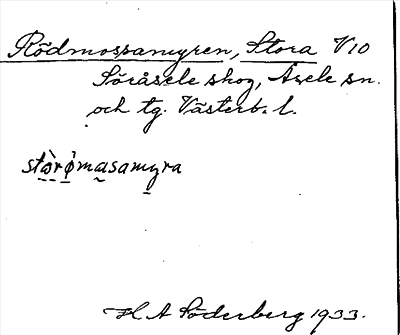 Rödmossamyren, Stora V10
Söråsele skog, Åsele sn.
och tg. Västerb. l.
stòrø̀masamyra
H A Söderberg 1933.